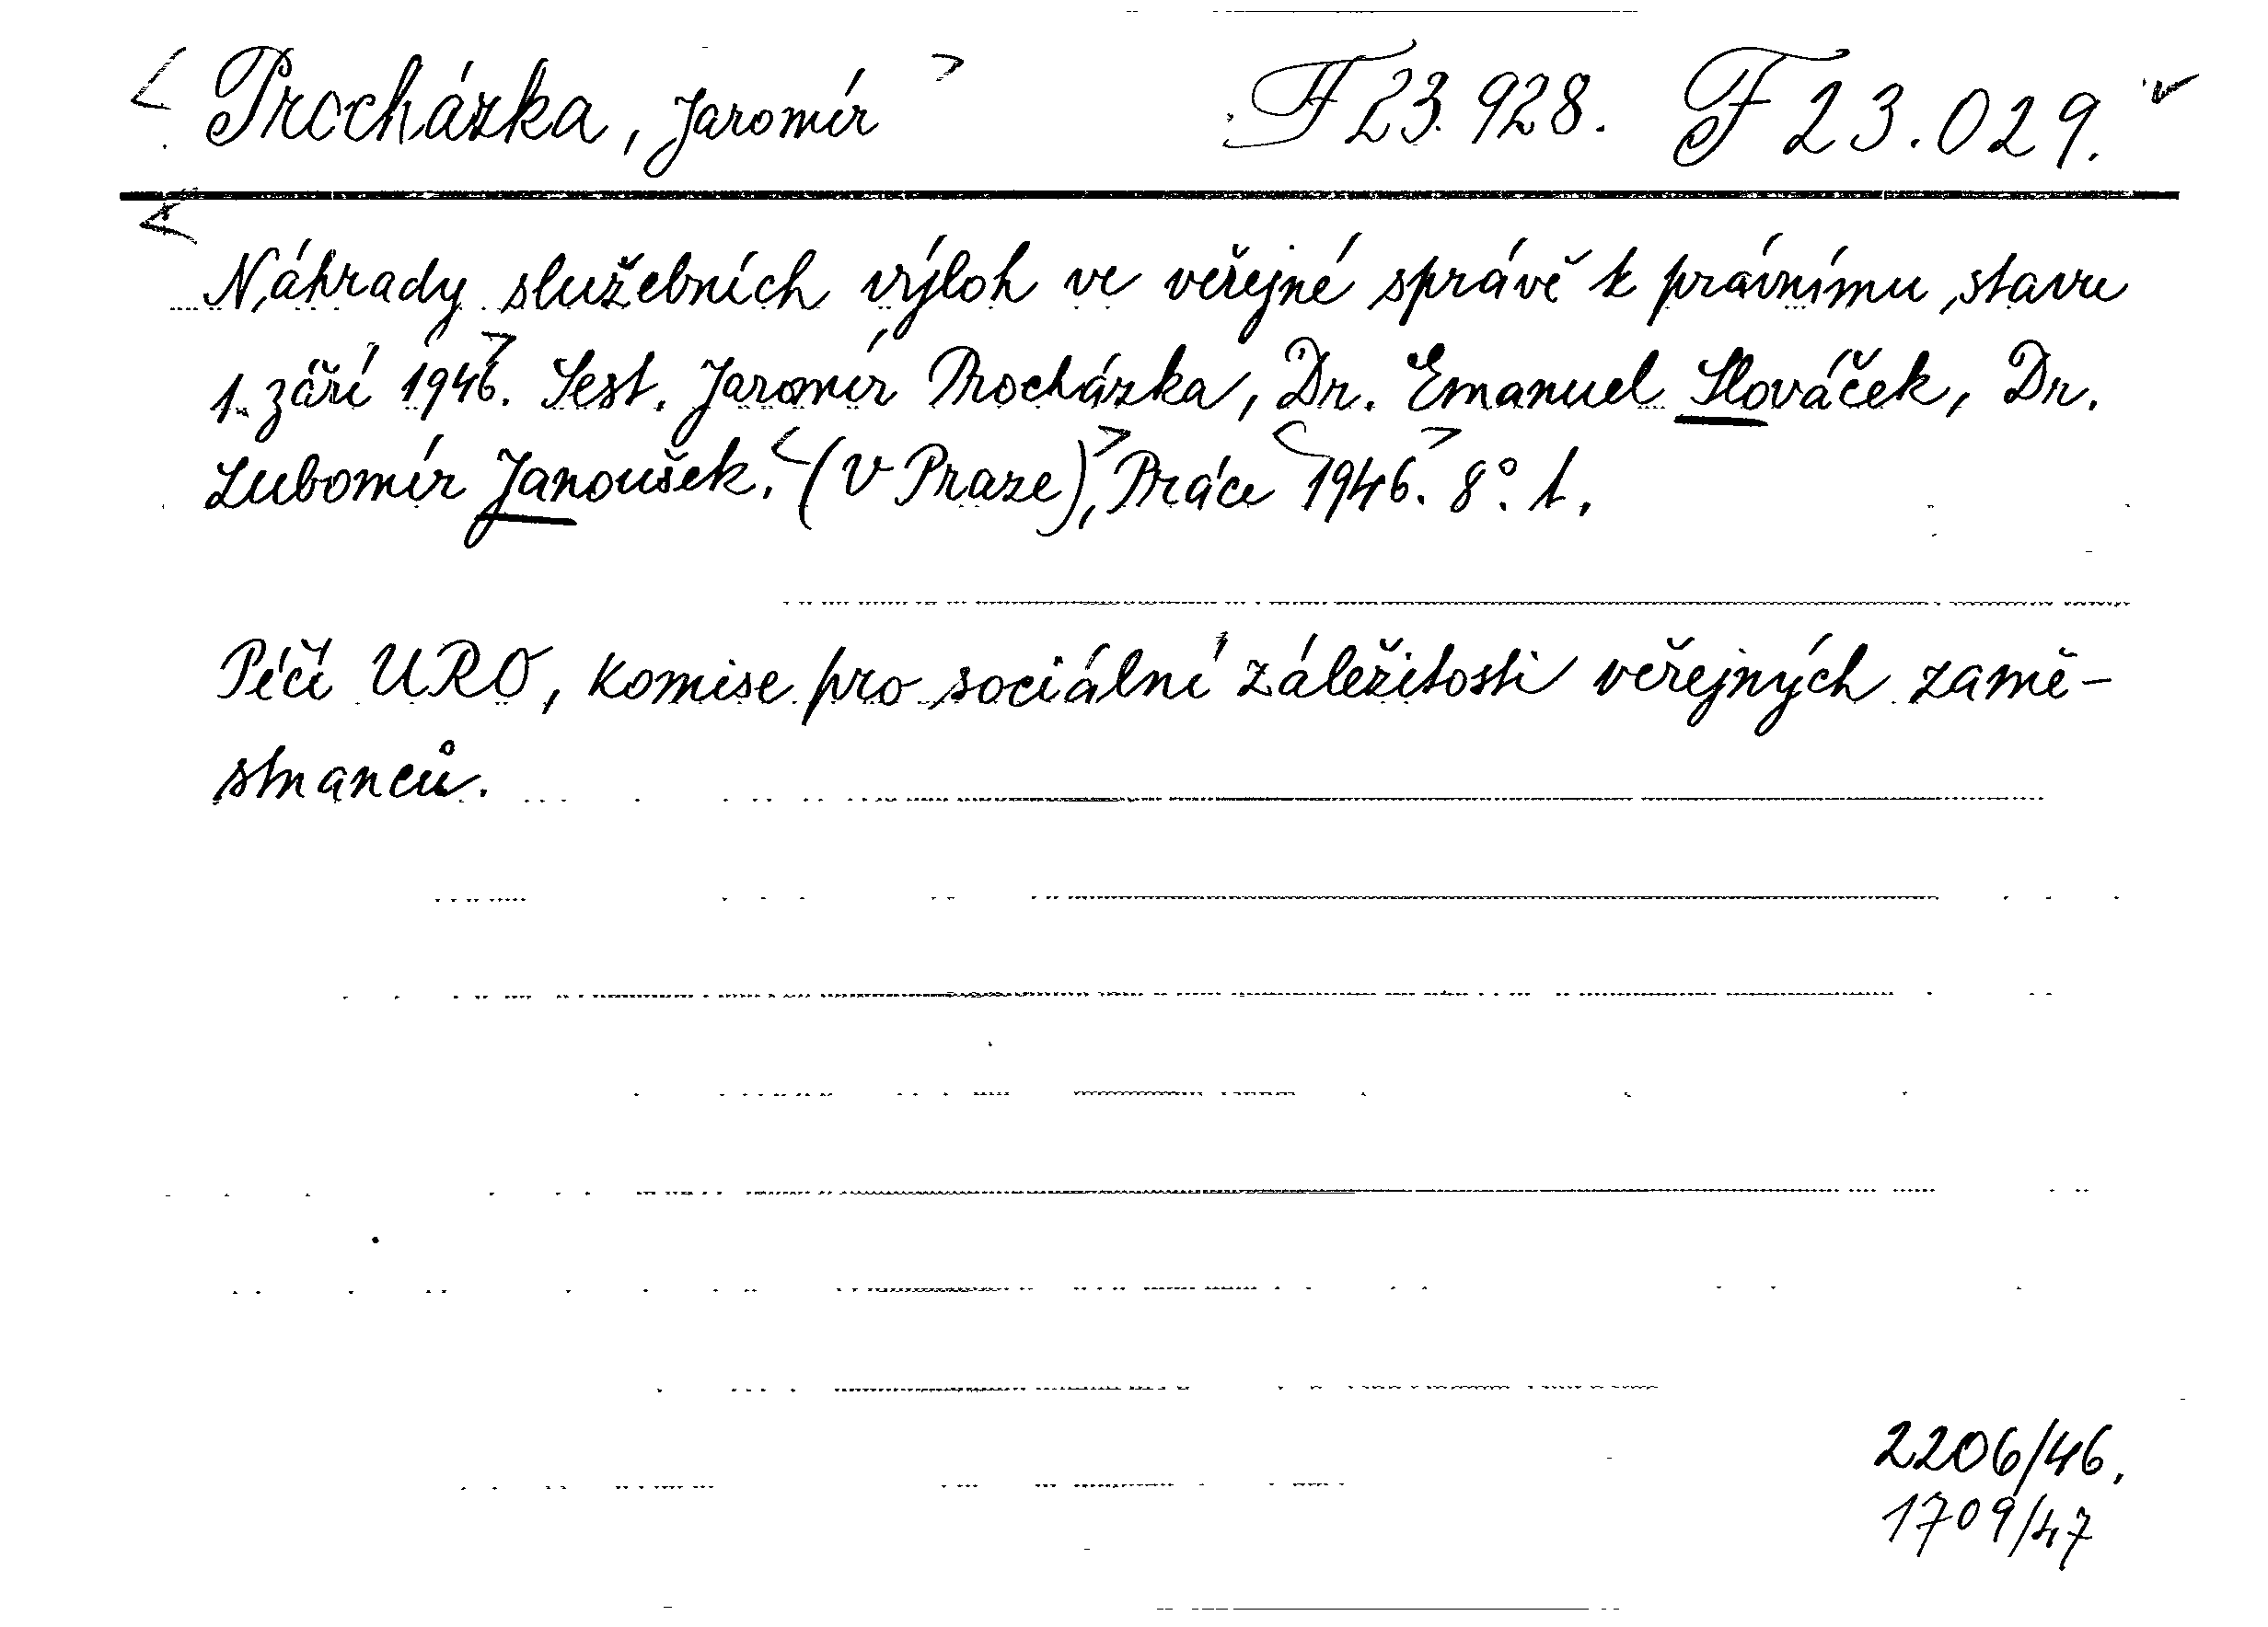 < Procházka, Jaromír > F 23.928. F 23.029.
< Náhrady služebních výloh ve veřejné správě k právnímu stavu
1. září 1946>. Sest. Jaromír Procházka, Dr. Emanuel Slováček, Dr.
Lubomír Janoušek. <(V Praze),> Práce <1946>. 8°. 1.
Péčí URO, komise pro sociální záležitosti veřejných zamě-
stnanců.
2206/46.
1709/47